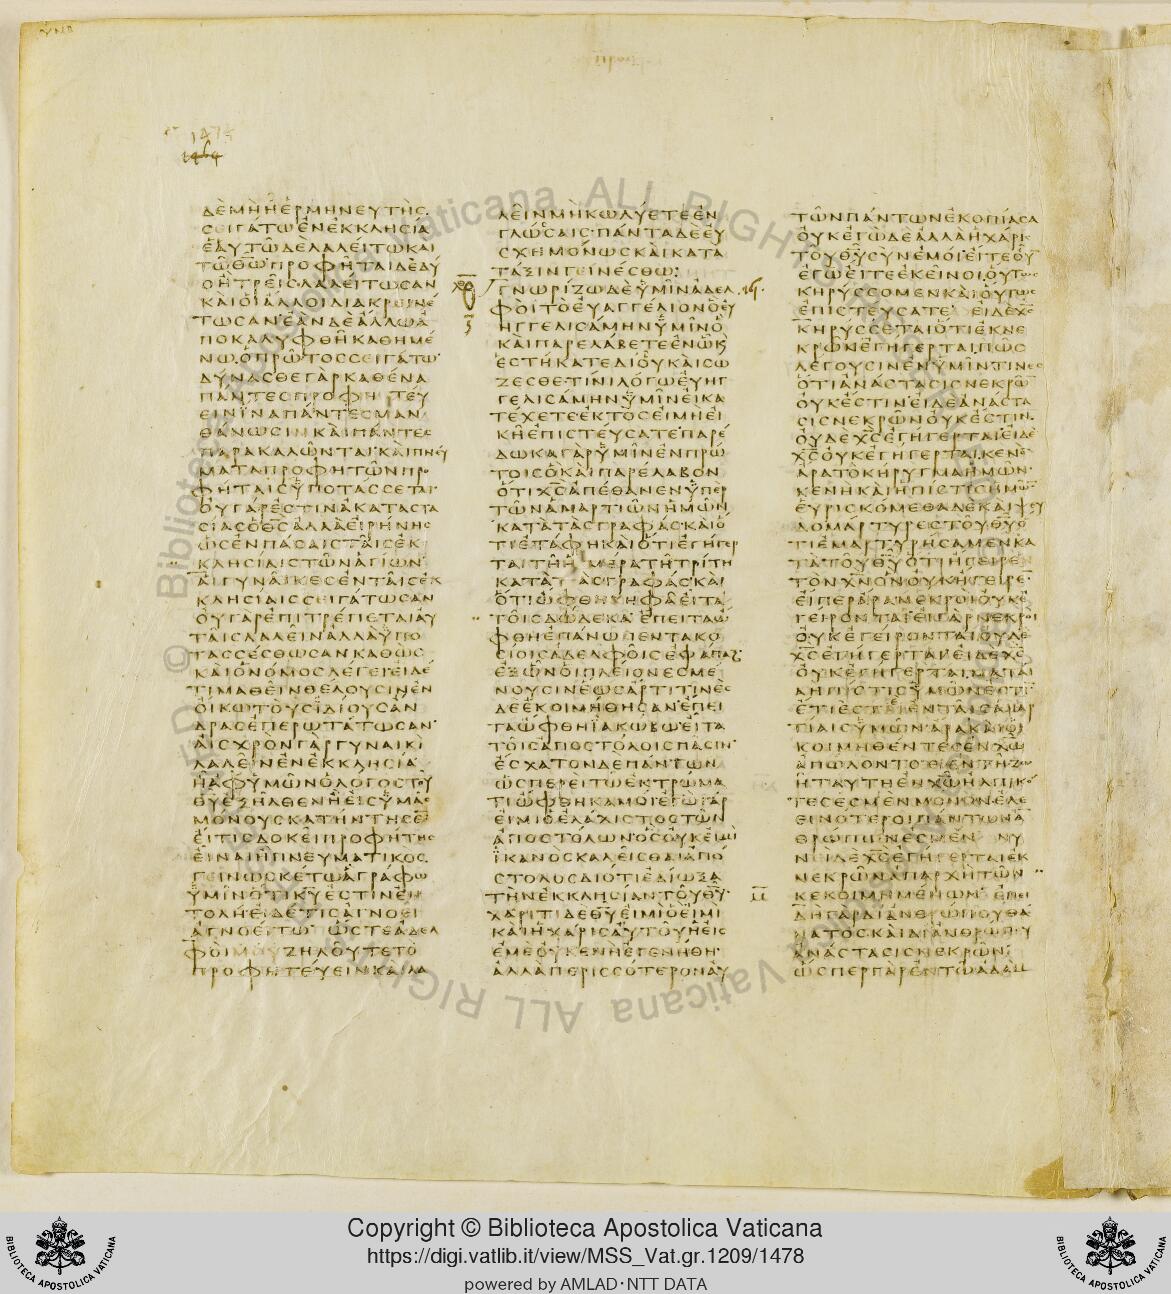 1474
1464
ΔΕΜΗΗΕΡΜΗΝΕΥΤΗΣ
ΣΕΙΓΑΤΩΕΝΕΚΚΛΗΣΙΑ
ΕΑΥΤΩΔΕΛΑΛΕΙΤΩΚΑΙ
ΤΩΘΩΠΡΟΦΗΤΑΙΔΕΔΥ
ΟΗΤΡΕΙΣΛΑΛΕΙΤΩΣΑΝ
ΚΑΙΟΙΑΛΛΟΙΔΙΑΚΡΙΝΕ
ΤΩΣΑΝΕΑΝΔΕΑΛΛΩΑ
ΠΟΚΑΛΥΦΘΗΚΑΘΗΜΕ
ΝΩΟΠΡΩΤΟΣΣΕΙΓΑΤΩ
ΔΥΝΑΣΘΕΓΑΡΚΑΘΕΝΑ
ΠΑΝΤΕΣΠΡΟΦΗΤΕΥ
ΕΙΝΙΝΑΠΑΝΤΕΣΜΑΝ
ΘΑΝΩΣΙΝΚΑΙΠΑΝΤΕΣ
ΠΑΡΑΚΑΛΩΝΤΑΙΚΑΙΠΝΕΥ
ΜΑΤΑΠΡΟΦΗΤΩΝΠΡΟ
ΦΗΤΑΙΣΥΠΟΤΑΣΣΕΤΑΙ
ΟΥΓΑΡΕΣΤΙΝΑΚΑΤΑΣΤΑ
ΣΙΑΣΟΘΣΑΛΛΑΕΙΡΗΝΗΣ
ΩΣΕΝΠΑΣΑΙΣΤΑΙΣΕΚ
ΚΛΗΣΙΑΙΣΤΩΝΑΓΙΩΝ
ΑΙΓΥΝΑΙΚΕΣΕΝΤΑΙΣΕΚ
ΚΛΗΣΙΑΙΣΣΕΙΓΑΤΩΣΑΝ
ΟΥΓΑΡΕΠΙΤΡΕΠΕΤΑΙΑΥ
ΤΑΙΣΛΑΛΕΙΝΑΛΛΑΥΠΟ
ΤΑΣΣΕΣΘΩΣΑΝΚΑΘΩΣ
ΚΑΙΟΝΟΜΟΣΛΕΓΕΙΕΙΔΕ
ΤΙΜΑΘΕΙΝΘΕΛΟΥΣΙΝΕΝ
ΟΙΚΩΤΟΥΣΙΔΙΟΥΣΑΝ
ΔΡΑΣΕΠΕΡΩΤΑΤΩΣΑΝ
ΑΙΣΧΡΟΝΓΑΡΓΥΝΑΙΚΙ
ΛΑΛΕΙΝΕΝΕΚΚΛΗΣΙΑ
ΗΑΦΥΜΩΝΟΛΟΓΟΣΤΟΥ
ΘΥΕΞΗΛΘΕΝΗΕΙΣΥΜΑΣ
ΜΟΝΟΥΣΚΑΤΗΝΤΗΣΕ
ΕΙΤΙΣΔΟΚΕΙΠΡΟΦΗΤΗΣ
ΕΙΝΑΙΗΠΝΕΥΜΑΤΙΚΟΣ
ΓΕΙΝΩΣΚΕΤΩΑΓΡΑΦΩ
ΥΜΙΝΟΤΙΚΥΕΣΤΙΝΕΝ
ΤΟΛΗΕΙΔΕΤΙΣΑΓΝΟΕΙ
ΑΓΝΟΕΙΤΩΩΣΤΕΑΔΕΛ
ΦΟΙΜΟΥΖΗΛΟΥΤΕΤΟ
ΠΡΟΦΗΤΕΥΕΙΝΚΑΙΛΑ
ΛΕΙΝΜΗΚΩΛΥΕΤΕΕΝ
ΓΛΩΣΣΑΙΣΠΑΝΤΑΔΕΕΥ
ΣΧΗΜΟΝΩΣΚΑΙΚΑΤΑ
ΤΑΞΙΝΓΕΙΝΕΣΘΩ
ΓΝΩΡΙΖΩΔΕΥΜΙΝΑΔΕΛ
ΦΟΙΤΟΕΥΑΓΓΕΛΙΟΝΟΕΥ
ΗΓΓΕΛΙΣΑΜΗΝΥΜΙΝΟ
ΚΑΙΠΑΡΕΛΑΒΕΤΕΕΝΩΚ
ΕΣΤΗΚΑΤΕΔΙΟΥΚΑΙΣΩ
ΖΕΣΘΕΤΙΝΙΛΟΓΩΕΥΗΓ
ΓΕΛΙΣΑΜΗΝΥΜΙΝΕΙΚΑ
ΤΕΧΕΤΕΕΚΤΟΣΕΙΜΗΕΙ
ΚΗΕΠΙΣΤΕΥΣΑΤΕΠΑΡΕ
ΔΩΚΑΓΑΡΥΜΙΝΕΝΠΡΩ
ΤΟΙΣΟΚΑΙΠΑΡΕΛΑΒΟΝ
ΟΤΙΧΣΑΠΕΘΑΝΕΝΥΠΕΡ
ΤΩΝΑΜΑΡΤΙΩΝΗΜΩΝ
ΚΑΤΑΤΑΣΓΡΑΦΑΣΚΑΙΟ
ΤΙΕΤΑΦΗΚΑΙΟΤΙΕΓΗΓΕΡ
ΤΑΙΤΗΗΜΕΡΑΤΗΤΡΙΤΗ
ΚΑΤΑΤΑΣΓΡΑΦΑΣΚΑΙ
ΟΤΙΩΦΘΗΚΗΦΑΕΙΤΑ
ΤΟΙΣΔΩΔΕΚΑΕΠΕΙΤΑΩ
ΦΘΗΕΠΑΝΩΠΕΝΤΑΚΟ
ΣΙΟΙΣΑΔΕΛΦΟΙΣΕΦΑΠΑΞ
ΕΞΩΝΟΙΠΛΕΙΟΝΕΣΜΕ
ΝΟΥΣΙΝΕΩΣΑΡΤΙΤΙΝΕΣ
ΔΕΕΚΟΙΜΗΘΗΣΑΝΕΠΕΙ
ΤΑΩΦΘΗΙΑΚΩΒΩΕΙΤΑ
ΤΟΙΣΑΠΟΣΤΟΛΟΙΣΠΑΣΙΝ
ΕΣΧΑΤΟΝΔΕΠΑΝΤΩΝ
ΩΣΠΕΡΕΙΤΩΕΚΤΡΩΜΑ
ΤΙΩΦΘΗΚΑΜΟΙΕΓΩΓΑΡ
ΕΙΜΙΟΕΛΑΧΙΣΤΟΣΤΩΝ
ΑΠΟΣΤΟΛΩΝΟΣΟΥΚΕΙΜΙ
ΙΚΑΝΟΣΚΑΛΕΙΣΘΑΙΑΠΟ
ΣΤΟΛΟΣΔΙΟΤΙΕΔΙΩΞΑ
ΤΗΝΕΚΚΛΗΣΙΑΝΤΟΥΘΥ
ΧΑΡΙΤΙΔΕΘΥΕΙΜΙΟΕΙΜΙ
ΚΑΙΗΧΑΡΙΣΑΥΤΟΥΗΕΙΣ
ΕΜΕΟΥΚΕΝΗΕΓΕΝΗΘΗ
ΑΛΛΑΠΕΡΙΣΣΟΤΕΡΟΝΑΥ
ΤΩΝΠΑΝΤΩΝΕΚΟΠΙΑΣΑ
ΟΥΚΕΓΩΔΕΑΛΛΑΗΧΑΡΙΣ
ΤΟΥΘΥΣΥΝΕΜΟΙΕΙΤΕΟΥ
ΕΓΩΕΙΤΕΕΚΕΙΝΟΙΟΥΤΩΣ
ΚΗΡΥΣΣΟΜΕΝΚΑΙΟΥΤΩΣ
ΕΠΙΣΤΕΥΣΑΤΕΕΙΔΕΧΣ
ΚΗΡΥΣΣΕΤΑΙΟΤΙΕΚΝΕ
ΚΡΩΝΕΓΗΓΕΡΤΑΙΠΩΣ
ΛΕΓΟΥΣΙΝΕΝΥΜΙΝΤΙΝΕΣ
ΟΤΙΑΝΑΣΤΑΣΙΣΝΕΚΡΩ
ΟΥΚΕΣΤΙΝΕΙΔΕΑΝΑΣΤΑ
ΣΙΣΝΕΚΡΩΝΟΥΚΕΣΤΙΝ
ΟΥΔΕΧΣΕΓΗΓΕΡΤΑΙΕΙΔΕ
ΧΣΟΥΚΕΓΗΓΕΡΤΑΙΚΕΝΟ
ΑΡΑΤΟΚΗΡΥΓΜΑΗΜΩΝ
ΚΕΝΗΚΑΙΗΠΙΣΤΙΣΗΜΩ
ΕΥΡΙΣΚΟΜΕΘΑΔΕΚΑΙΨΕΥ
ΔΟΜΑΡΤΥΡΕΣΤΟΥΘΥΟ
ΤΙΕΜΑΡΤΥΡΗΣΑΜΕΝΚΑ
ΤΑΤΟΥΘΥΟΤΙΗΓΕΙΡΕ
ΤΟΝΧΝΟΝΟΥΚΗΓΕΙΡΕ
ΕΙΠΕΡΑΡΑΝΕΚΡΟΙΟΥΚΕ
ΓΕΙΡΟΝΤΑΙΕΙΓΑΡΝΕΚΡΟΙ
ΟΥΚΕΓΕΙΡΟΝΤΑΙΟΥΔΕ
ΧΣΕΓΗΓΕΡΤΑΙΕΙΔΕΧΣ
ΟΥΚΕΓΗΓΕΡΤΑΙΜΑΤΑΙ
ΑΗΠΙΣΤΙΣΥΜΩΝΕΣΤΙ
ΕΤΙΕΣΤΕΕΝΤΑΙΣΑΜΑΡ
ΤΙΑΙΣΥΜΩΝΑΡΑΚΑΙΟΙ
ΚΟΙΜΗΘΕΝΤΕΣΕΝΧΩ
ΑΠΩΛΟΝΤΟΕΙΕΝΤΗΖΩ
ΗΤΑΥΤΗΕΝΧΩΗΛΠΙΚΟ
ΤΕΣΕΣΜΕΝΜΟΝΟΝΕΛΕ
ΕΙΝΟΤΕΡΟΙΠΑΝΤΩΝΑ
ΘΡΩΠΩΝΕΣΜΕΝΝΥ
ΝΕΙΔΕΧΣΕΓΗΓΕΡΤΑΙΕΚ
ΝΕΚΡΩΝΑΠΑΡΧΗΤΩΝ
ΚΕΚΟΙΜΗΜΕΝΩΝΕΠΕΙ
ΔΗΓΑΡΔΙΑΝΘΡΩΠΟΥΘΑ
ΝΑΤΟΣΚΑΙΔΙΑΝΘΡΩΠΟΥ
ΑΝΑΣΤΑΣΙΣΝΕΚΡΩΝ
ΩΣΠΕΡΓΑΡΕΝΤΩΑΔΑΜ
Copyright © Biblioteca Apostolica Vaticana
https://digi.vatlib.it/view/MSS_Vat.gr.1209/1478
powered by AMLAD·NTT DATA
BIBLIOTECA APOSTOLICA VATICANA
BIBLIOTECA APOSTOLICA VATICANA